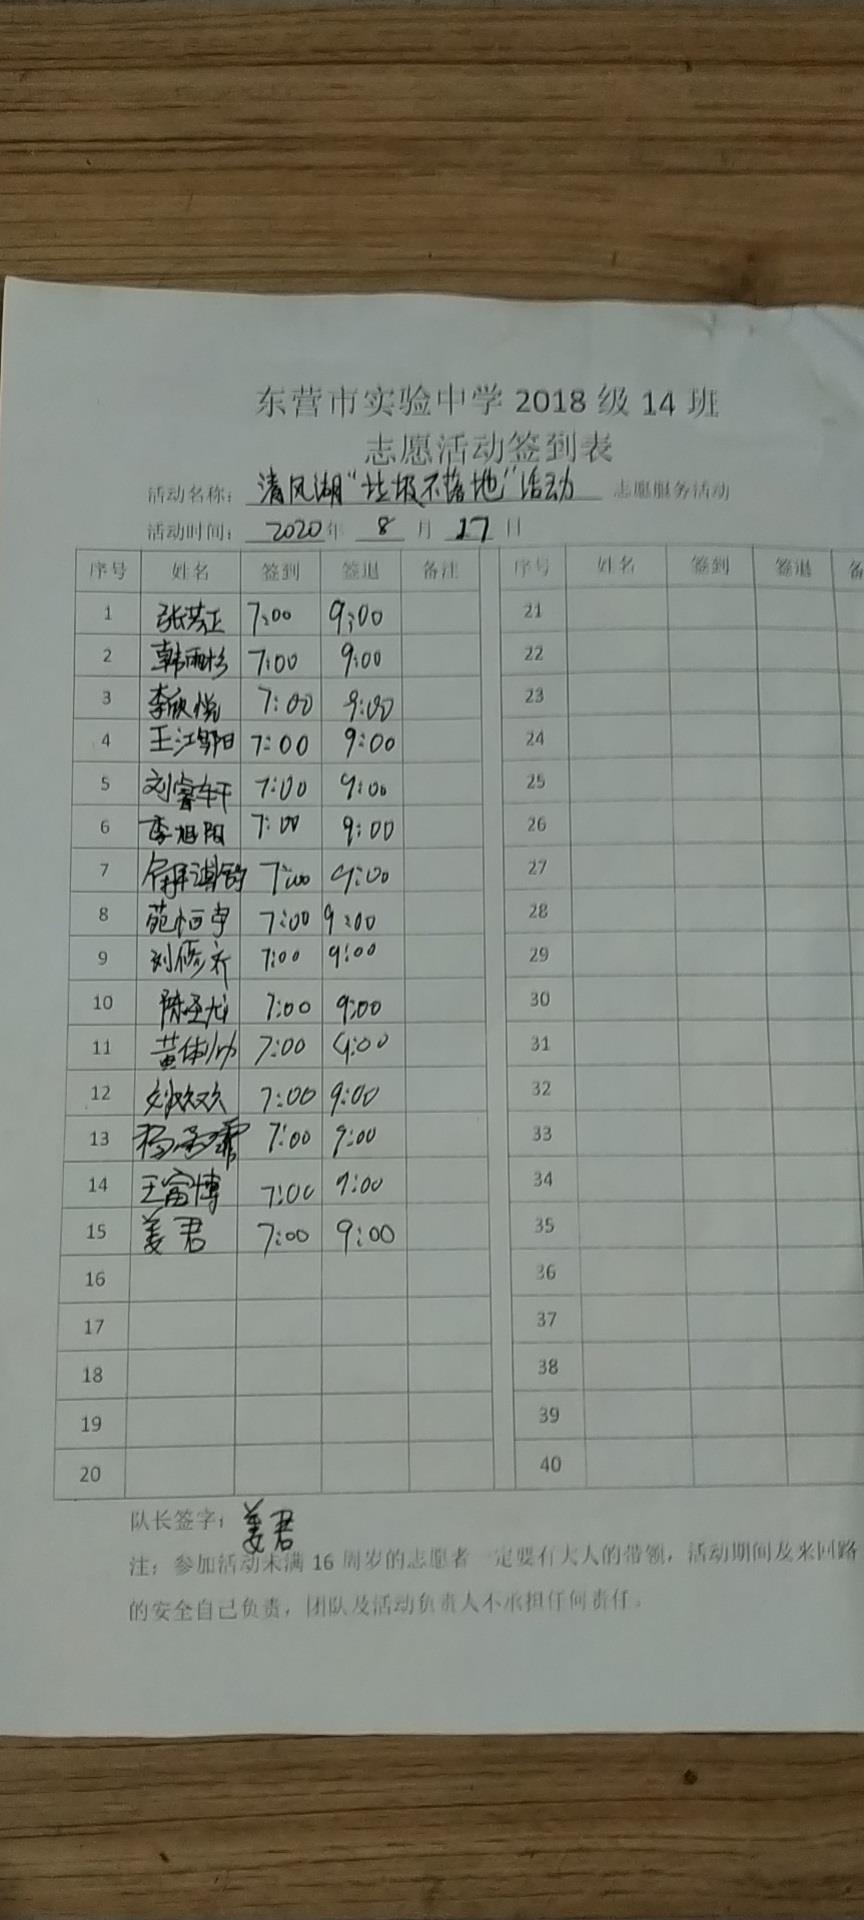 东营市实验中学 2018 级 14 班
志愿活动签到表
活动名称：清风湖“垃圾不落地”活动 志愿服务活动
活动时间：2020 年 8 月 17 日
序号 姓名 签到 签退 备注 序号 姓名 签到 签退 备
1 张芸正 7:00 9:00 21
2 韩雨杉 7:00 9:00 22
3 李欣悦 7:00 9:00 23
4 王江 7:00 9:00 24
5 刘睿轩 7:00 9:00 25
6 李旭阳 7:00 9:00 26
7 7:00 9:00 27
8 苑恒宇 7:00 9:00 28
9 刘修齐 7:00 9:00 29
10 陈圣龙 7:00 9:00 30
11 黄伟 7:00 9:00 31
12 刘欢欢 7:00 9:00 32
13 杨 7:00 9:00 33
14 王富博 7:00 9:00 34
15 姜君 7:00 9:00 35
16 36
17 37
18 38
19 39
20 40
队长签字：姜君
注：参加活动未满 16 周岁的志愿者一定要有大人的带领，活动期间及来回路
的安全自己负责，团队及活动负责人不承担任何责任。